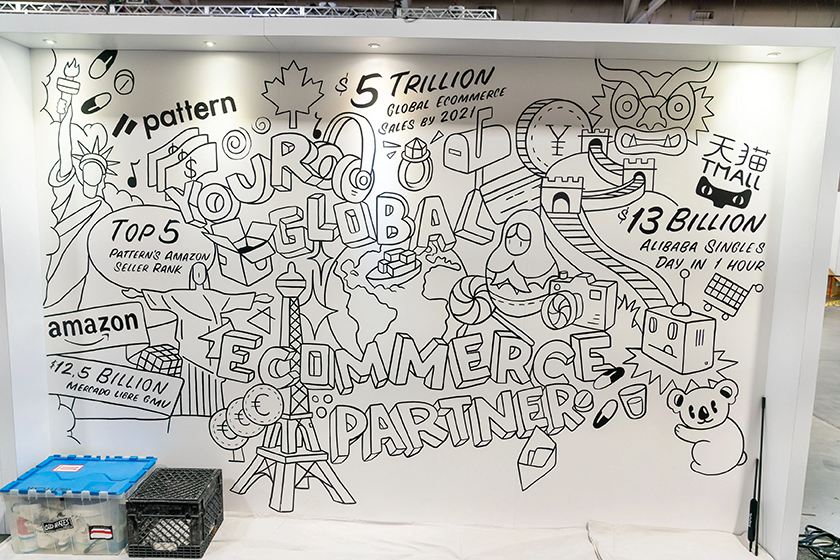 pattern
$5 TRILLION
GLOBAL ECOMMERCE
SALES BY 2021
YOUR
GLOBAL
ECOMMERCE
PARTNER
天猫
TMALL
$13 BILLION
ALIBABA SINGLES
DAY IN 1 HOUR
TOP 5
PATTERN'S AMAZON
SELLER RANK
amazon
$12,5 BILLION
MERCADO LIBRE GMV